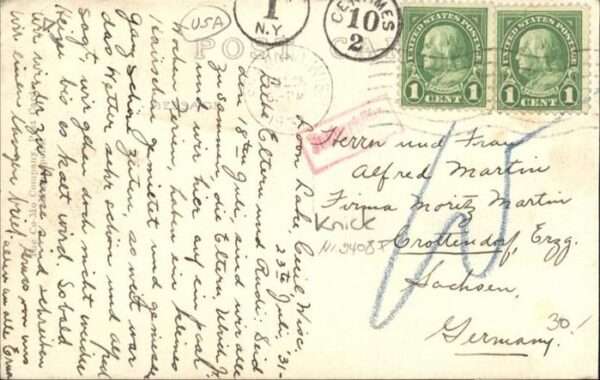 USA
1
N.Y
CENTIMES
10
2
POST CARD
UNITED STATES POSTAGE
1 CENT 1
UNITED STATES POSTAGE
1 CENT 1
Loon Lake, Cecil Wisc.
23te Juli, 31-
Liebe Eltern und Rudi! Seid
den 18ten Juli, sind wir alle
zusammen, die Eltern, Ulrich
und wir hier auf ein paar
Wochen Ferien, haben ein kleines
Häuschen gemietet und geniesen
ganz schöne Zeiten, so weit war
das Wetter sehr schön und als
sagt, wir gehn noch nicht wieder
Heim bis es kalt wird. Sobald
wir wieder zu Hause sind schreiben
wir einen langen brief.
Herrn und Frau
Alfred Martin
Firma Moritz Martin
Knick
Crottendorf, Erzg.
Sachsen,
Germany.
30!